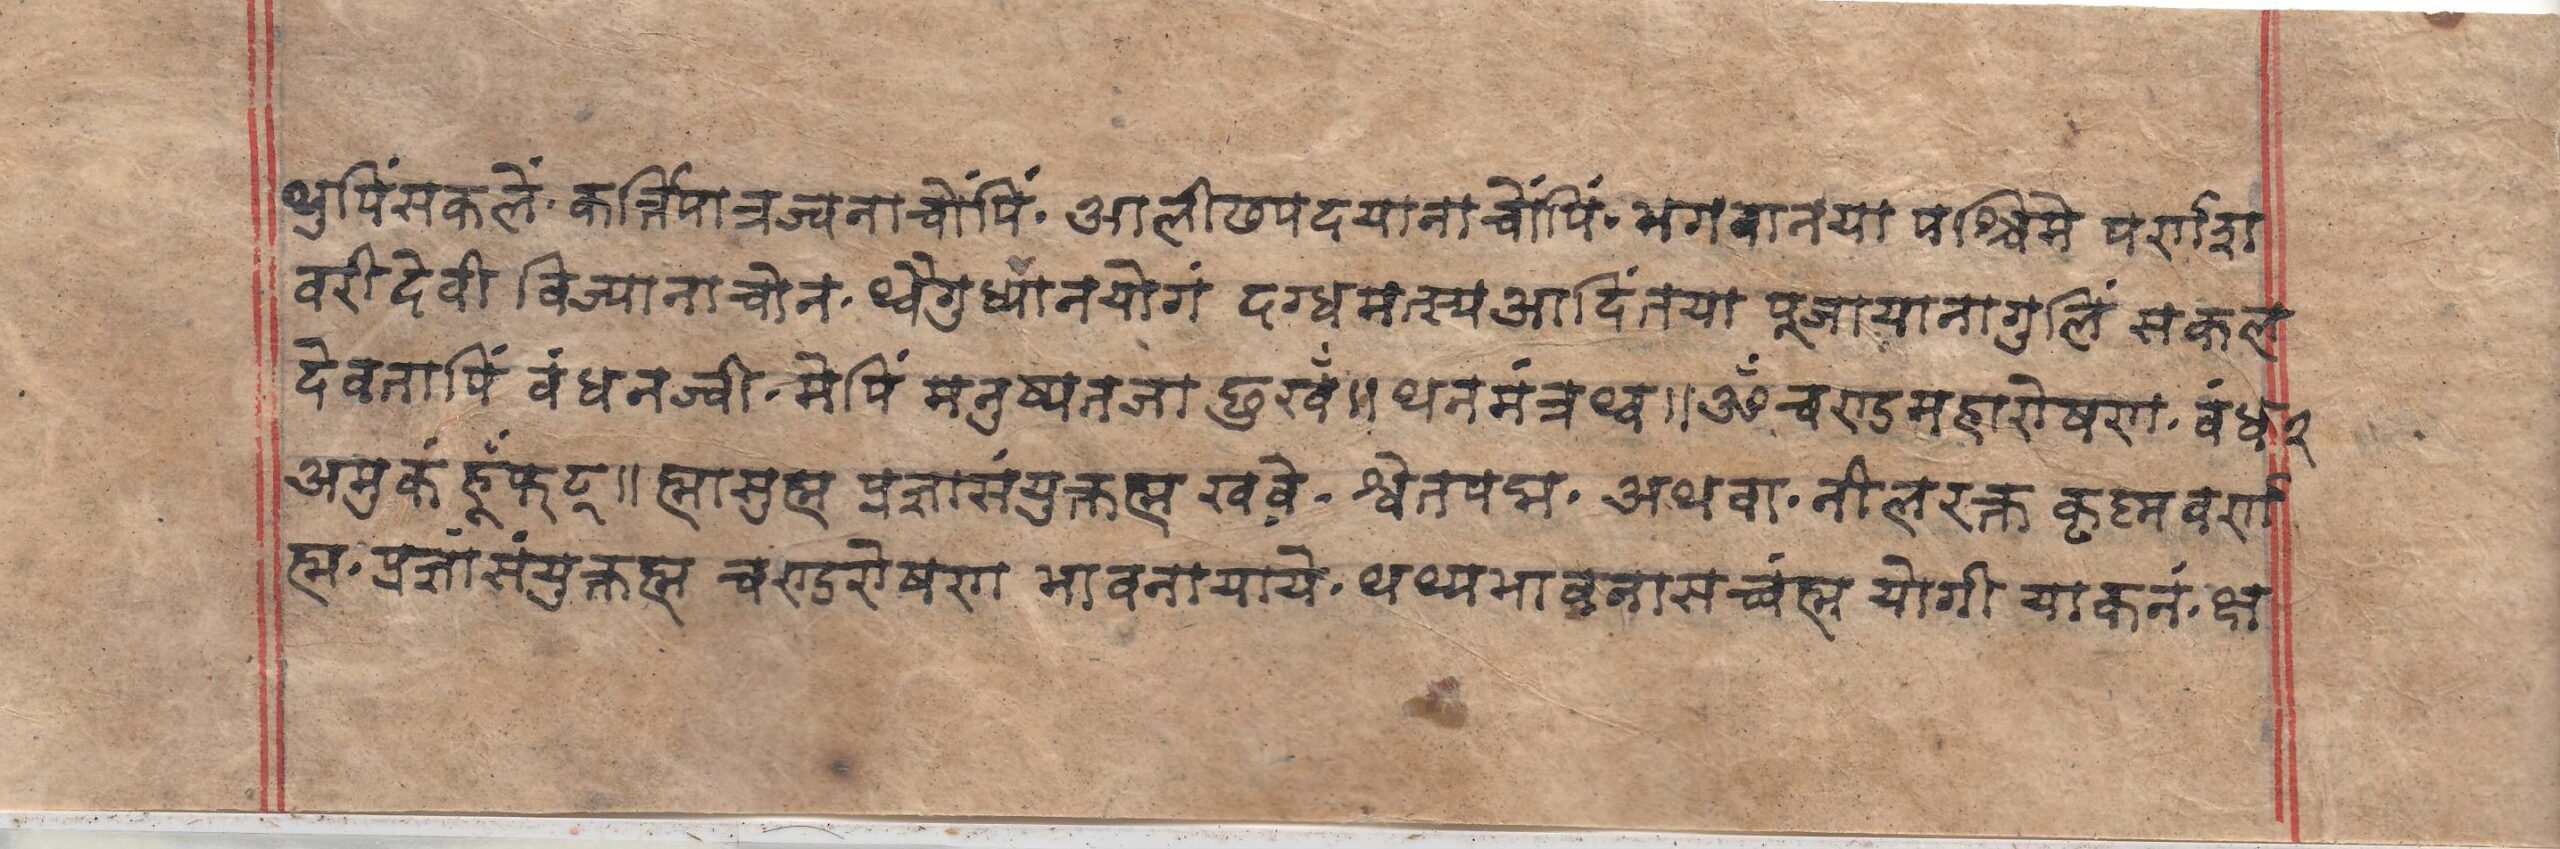 थुपिंसकलें· कर्त्तिपात्रज्वनाचोंपिं· आलीढपदयानाचोंपिं· भगवानया पश्चिमे पर्णाश
वरीदेवी विज्यानाचोन· थ्वैगुध्यानयोगं दग्धमत्स्यआदिंतया पूजायानागुलिं सकल
देवतापिं वंधनज्वी· मेपिं मनुष्यतजा छुखँ॥ थनमंत्रथ्व॥ ॐ चण्डमहारोषण· वंध२
अमुकं हूँफट्॥ ह्नामुह्म प्रज्ञासंयुक्तह्म खवे· श्वेतपद्म· अथवा· नीलरक्त कृह्मवर्ण
ह्म· प्रज्ञासंयुक्तह्म चण्डरोषण भावनायाये· थथ्यभावनासच्वंह्म योगी याकनं· क्ष